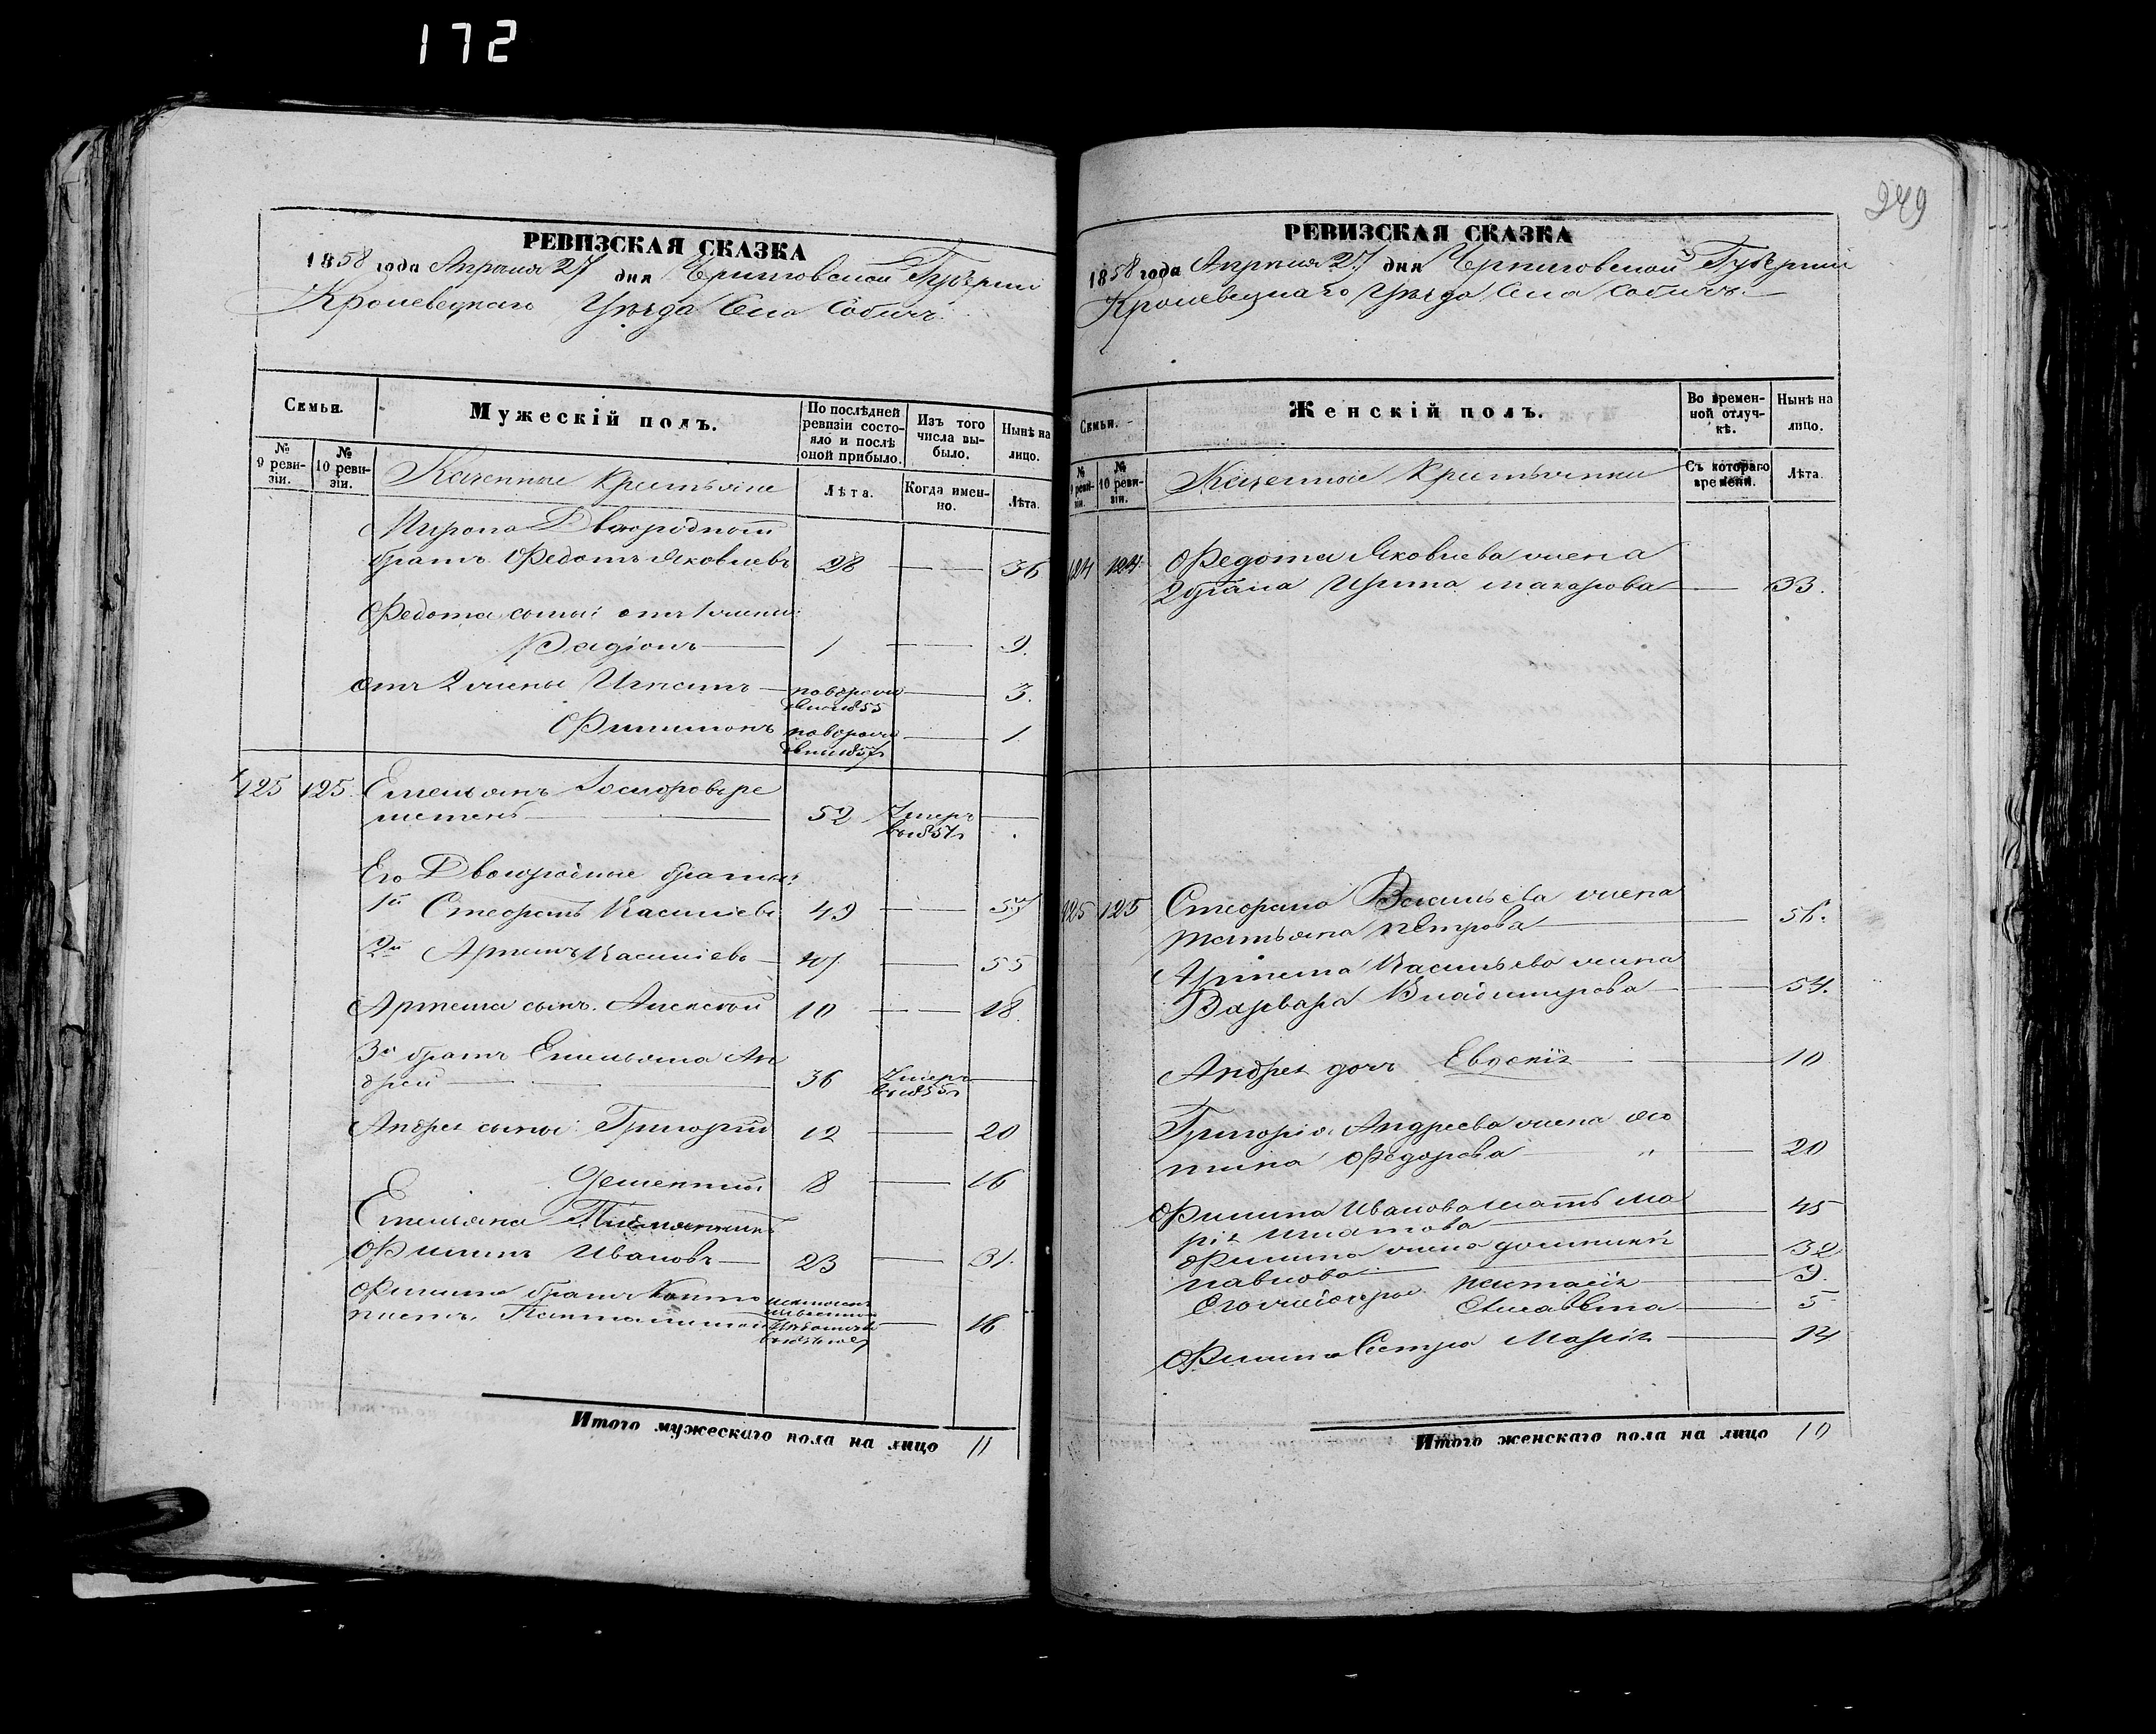 172
РЕВИЗСКАЯ СКАЗКА
1858 года Апреля 27 дня Черниговской Губернии
Кролевецкаго Уѣзда Села Собичъ
Семьи.
Мужескій полъ.
По послѣдней ревизіи состояло и послѣ оной прибыло.
Изъ того числа выбыло.
Нынѣ на лицо.
№ 9 ревизіи.
№ 10 ревизіи.
Казенные крестьяне
Лѣта.
Когда именно.
Лѣта.
Двоюродный
братъ Федотъ Яковлевъ 28 — 36
Федота сыны: отъ 1 жены:
Радіонъ — 1 — 9.
отъ 2 жены Игнатъ — 3.
Филимонъ — 1.
125 125. Емельянъ
52 Умеръ
Его Двоюродные братья:
1й Стефанъ Василіевъ 49 — 57
2й Артемъ Василіевъ — 47 — 55
Артема сынъ Алексѣй 10 — 18.
3й братъ Емельяна Ан
дрей — 36 Умеръ —
Андрея сыны: Григорій 12 — 20
Дементій 8 — 16
Емельяна Племянникъ
Филипъ Ивановъ — 23 — 31.
Филипа братъ
16
Итого мужескаго пола на лицо 11
249
РЕВИЗСКАЯ СКАЗКА
1858 года Апреля 27 дня Черниговской Губернии
Кролевецкаго Уѣзда Села Собичъ
Семьи.
Женскій полъ.
Во временной отлучкѣ.
Нынѣ на лицо.
№ 9 ревизіи.
№ 10 ревизіи.
Казенные крестьянки
Съ котораго времени.
Лѣта.
124 124. Федота Яковлева жена
Ирина Макарова — 33.
125 125 Стефана Васильева жена
Татьяна Петрова — 56.
Артема Васильева жена
Варвара Владимирова — 54.
Андрея дочь Евдокія — 10
Григорія Андреева жена
Федорова — 20
Филипа Иванова мать Ма
рія Игнатова — 45
Филипа жена
Павлова — 32
9.
Елисавета — 5
Филипа Сестра Марія — 14
Итого женскаго пола на лицо 10